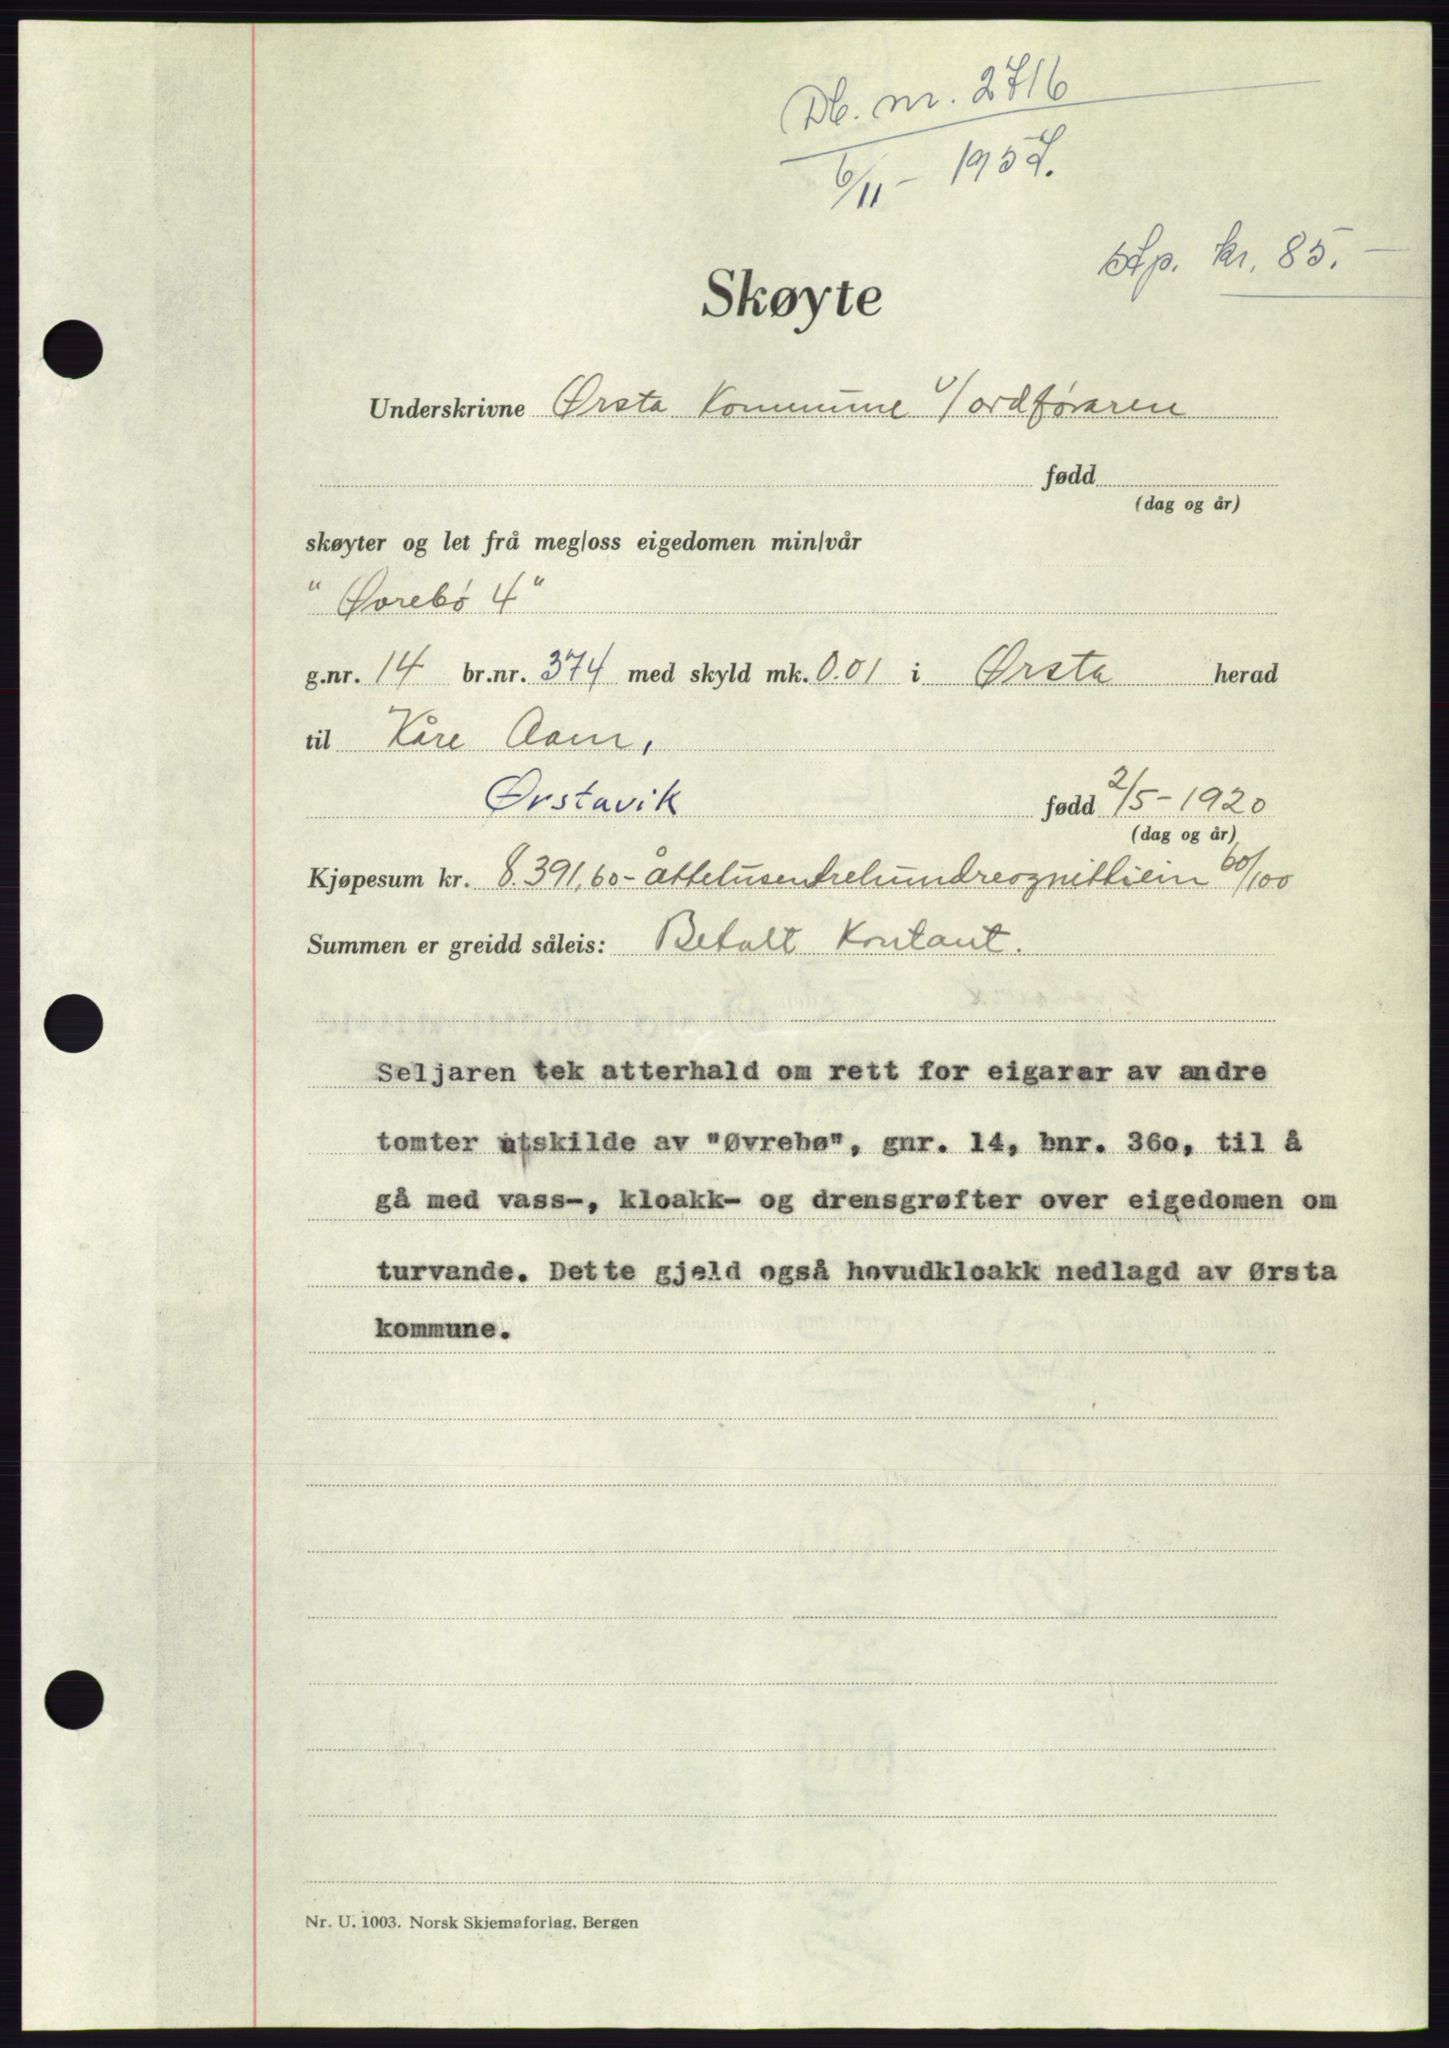 Db. nr. 2716
6/11 - 1957.
Stp. kr. 85.-
Skøyte
Underskrivne Ørsta Kommune v/ordføraren
fødd
(dag og år)
skøyter og let frå meg/oss eigedomen min/vår
"Øvrebø 4"
g.nr. 14 br.nr. 374 med skyld mk. 0.01 i Ørsta herad
til Kåre Aam,
Ørstavik fødd 2/5-1920
(dag og år)
Kjøpesum kr. 8.391,60- åttetusentrehundreognittiein 60/100
Summen er greidd såleis: Betalt Kontant.
Seljaren tek atterhald om rett for eigarar av andre
tomter utskilde av "Øvrebø", gnr. 14, bnr. 36o, til å
gå med vass-, kloakk- og drensgrøfter over eigedomen om
turvande. Dette gjeld også hovudkloakk nedlagd av Ørsta
kommune.
Nr. U. 1003. Norsk Skjemaforlag, Bergen